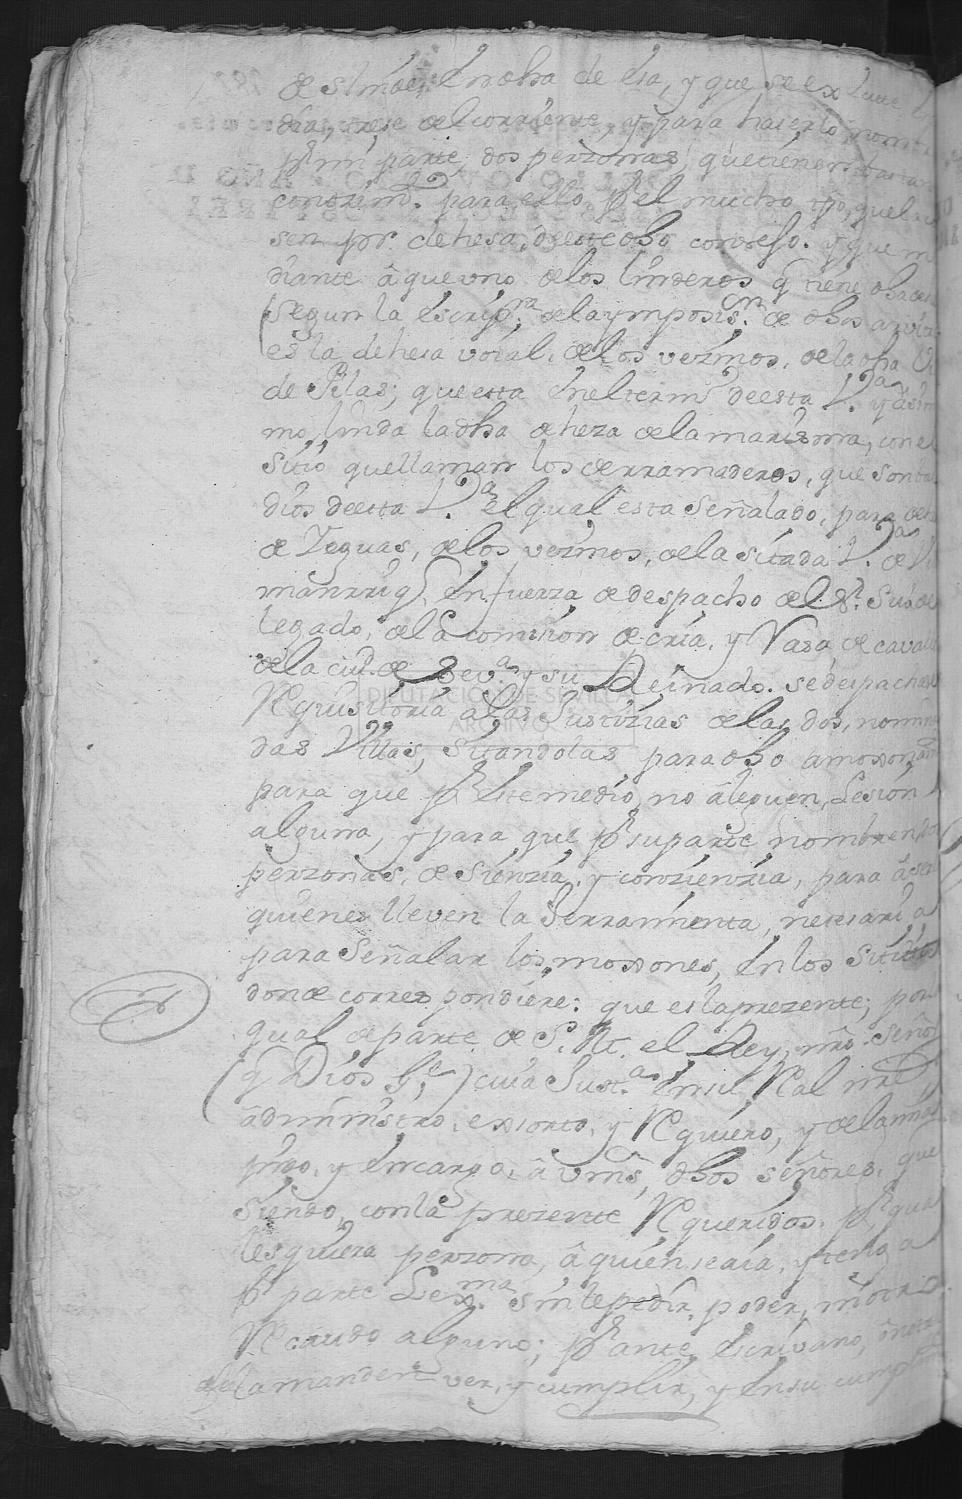 deslinde, en dha de esa, y que se execute
dia, trese del corriente, y para haserlo nomb
pr mi parte, dos perzonas, que tienen bastan
conosim.to para ello, pr el mucho tpo, que
sen pr. dehesa, de este dho conzejo. y que m
diante â que uno de los linderos q tiene dha de
(segun la escrip.ra, de la ymposis.on de dhos arvitr
es la dehesa voial, de los vezinos, de la dha V
de Pilas; que esta en el term.o de esta V.a y âsim
mo, linda la dha deheza de la marisma, con el
sitio que llaman los serramaderos, que son
dios de esta V.a el qual esta señalado, para
de Yeguas, de los vezinos, de la sitada V.a de Vi
manrriq, en fuerza de despacho del Sr. Subde
legado, de la comision de cria, y Raza de cavall
de la ciud. de Sev.a y su Reinado. se despacha
Requisitoria a las Justizias de las dos, nomina
das Villas, sitandolas para dho amoxonam
para que pr este medio, no âleguen, Lesion
alguna, y para que pr su parte nombren, dos
perzonas, de sienzia, y conzienzia, para â ser
quienes lleven la herramienta, nesesaria
para señalar los moxones, en los sitios
donde correspondiere: que es la prezente; por
qual de parte de S. M. el Rey, nro señor
(q Dios g.e) cuia Just.a en su Real nre
âdministro, exsorto, y Requiero, y de la mia
pido, y encargo, â vms, dhos señores, que
siendo, con la prezente Requeridos, pr qual
lesquiera perzona, â quien seaia, y tenga
pr parte Lexma. sin le pedir, poder, ni otro
Recaudo alguno; pr ante escrivano,
la manden ver, y cumplir, y en su cumplim